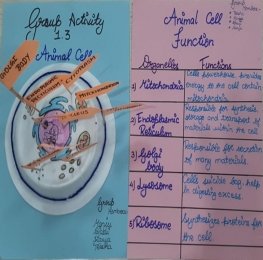 Group Activity
1.3
Animal Cell
GOLGI BODY
ENDOPLASMIC
RETICULUM
CYTOPLASM
MITOCHONDRION
Group
Members
Animal Cell
Function
Organelles
Functions
1) Mitochondria
Cells powerhouse provides
energy to the cell contain
mitochondria.
2) Endoplasmic
Reticulum
Responsible for synthesis,
storage and transport of
materials within the cell
3) Golgi
body
Responsible for secretion
of many materials.
4) Lysosome
Cells suicide bag, help
in digesting excess.
5) Ribosome
Synthesizes proteins for
the cell.